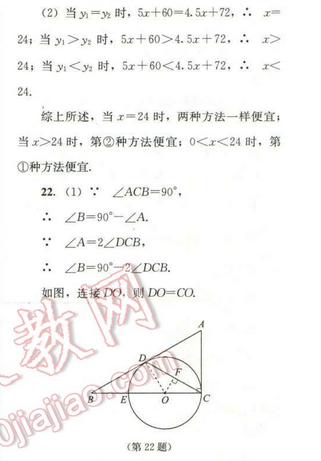 (2) 当 y₁=y₂ 时, 5x+60=4.5x+72, ∴ x=
24; 当 y₁>y₂ 时, 5x+60>4.5x+72, ∴ x>
24; 当 y₁<y₂ 时, 5x+60<4.5x+72, ∴ x<
24.
综上所述, 当 x=24 时, 两种方法一样便宜;
当 x>24 时, 第②种方法便宜; 0<x<24 时, 第
①种方法便宜.
22. (1) ∵ ∠ACB=90°,
∴ ∠B=90°-∠A.
∵ ∠A=2∠DCB,
∴ ∠B=90°-2∠DCB.
如图, 连接 DO, 则 DO=CO.
A
D
F
B
E
O
C
(第 22 题)